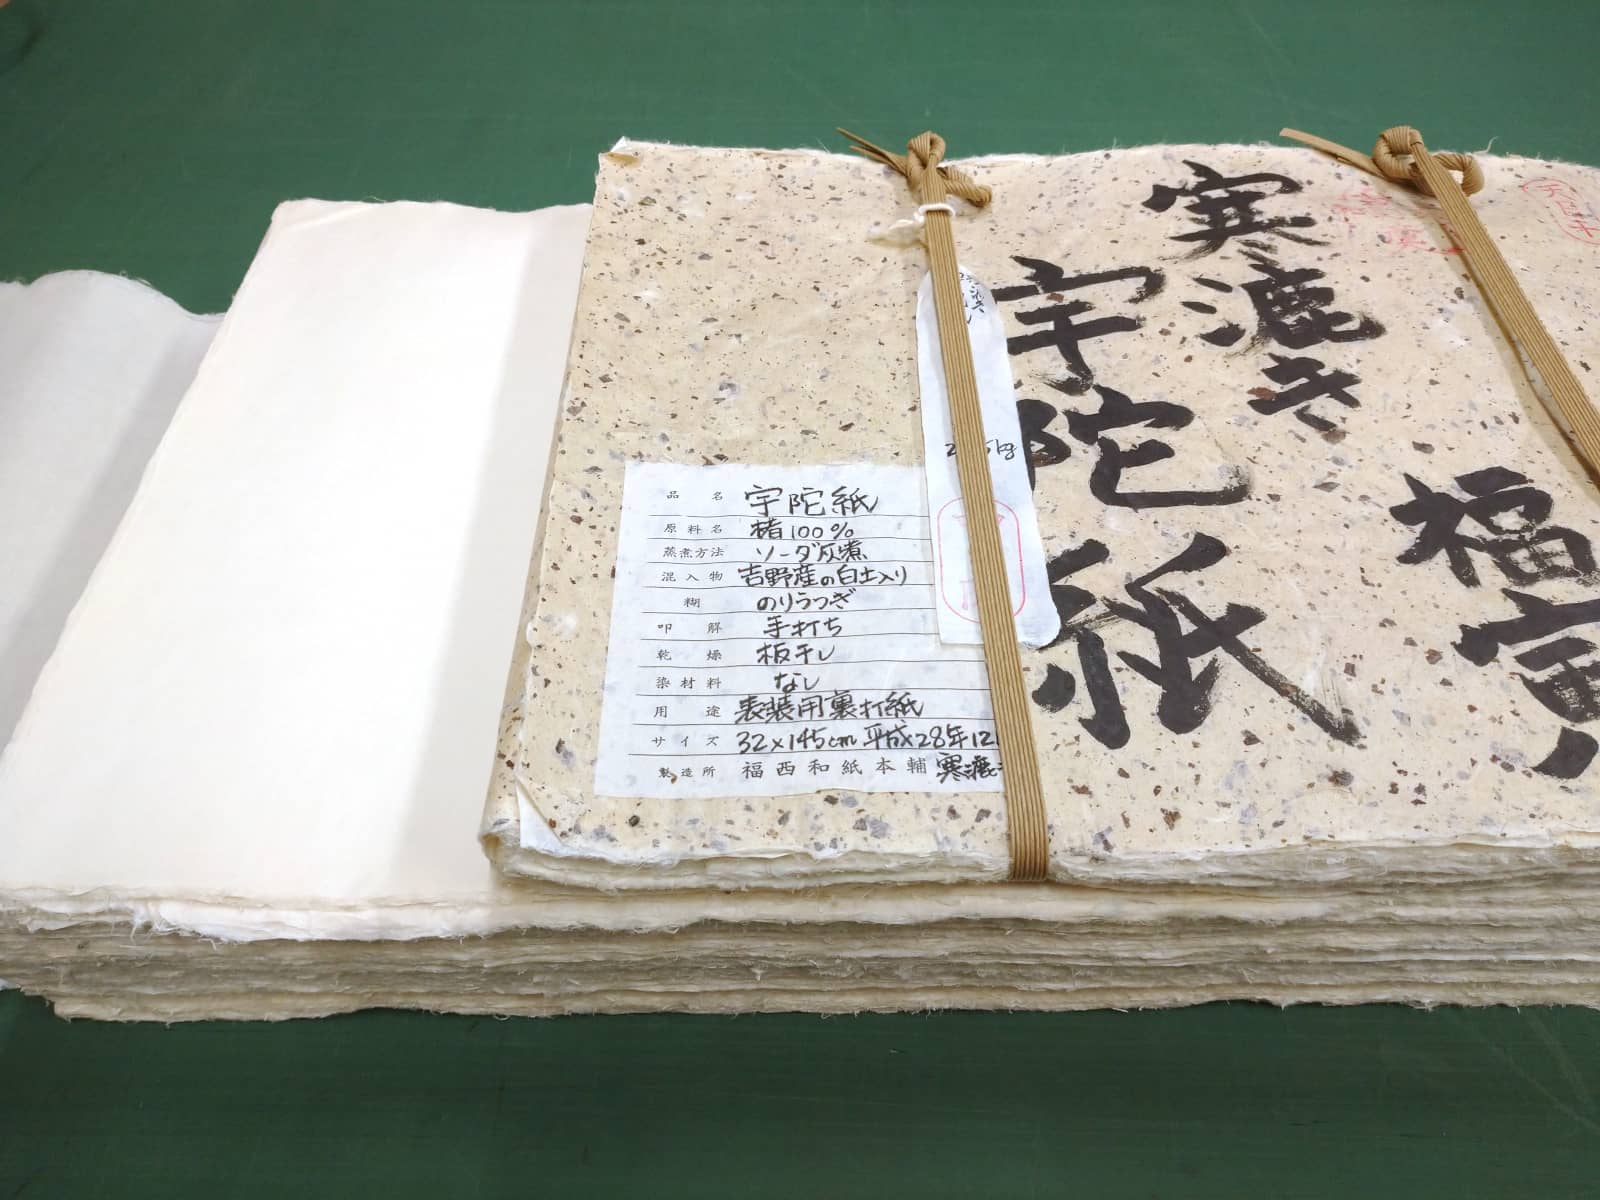 寒漉き
宇陀紙
福寅
品名 宇陀紙
原料名 楮100%
蒸煮方法 ソーダ灰煮
混入物 吉野産の白土入り
糊 のりうつぎ
叩解 手打ち
乾燥 板干し
染材料 なし
用途 表装用裏打紙
サイズ 32×145cm 平成28年12
製造所 福西和紙本舗 寒漉